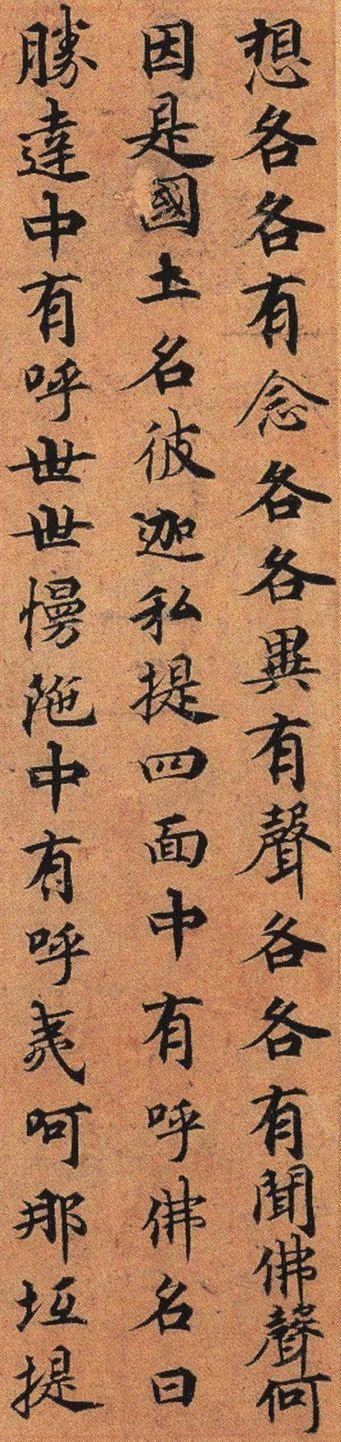 想各各有念各各異有聲各各有聞佛聲何
因是國土名彼迦私提四面中有呼佛名曰
勝達中有呼世世慢陁中有呼夷呵那坻提